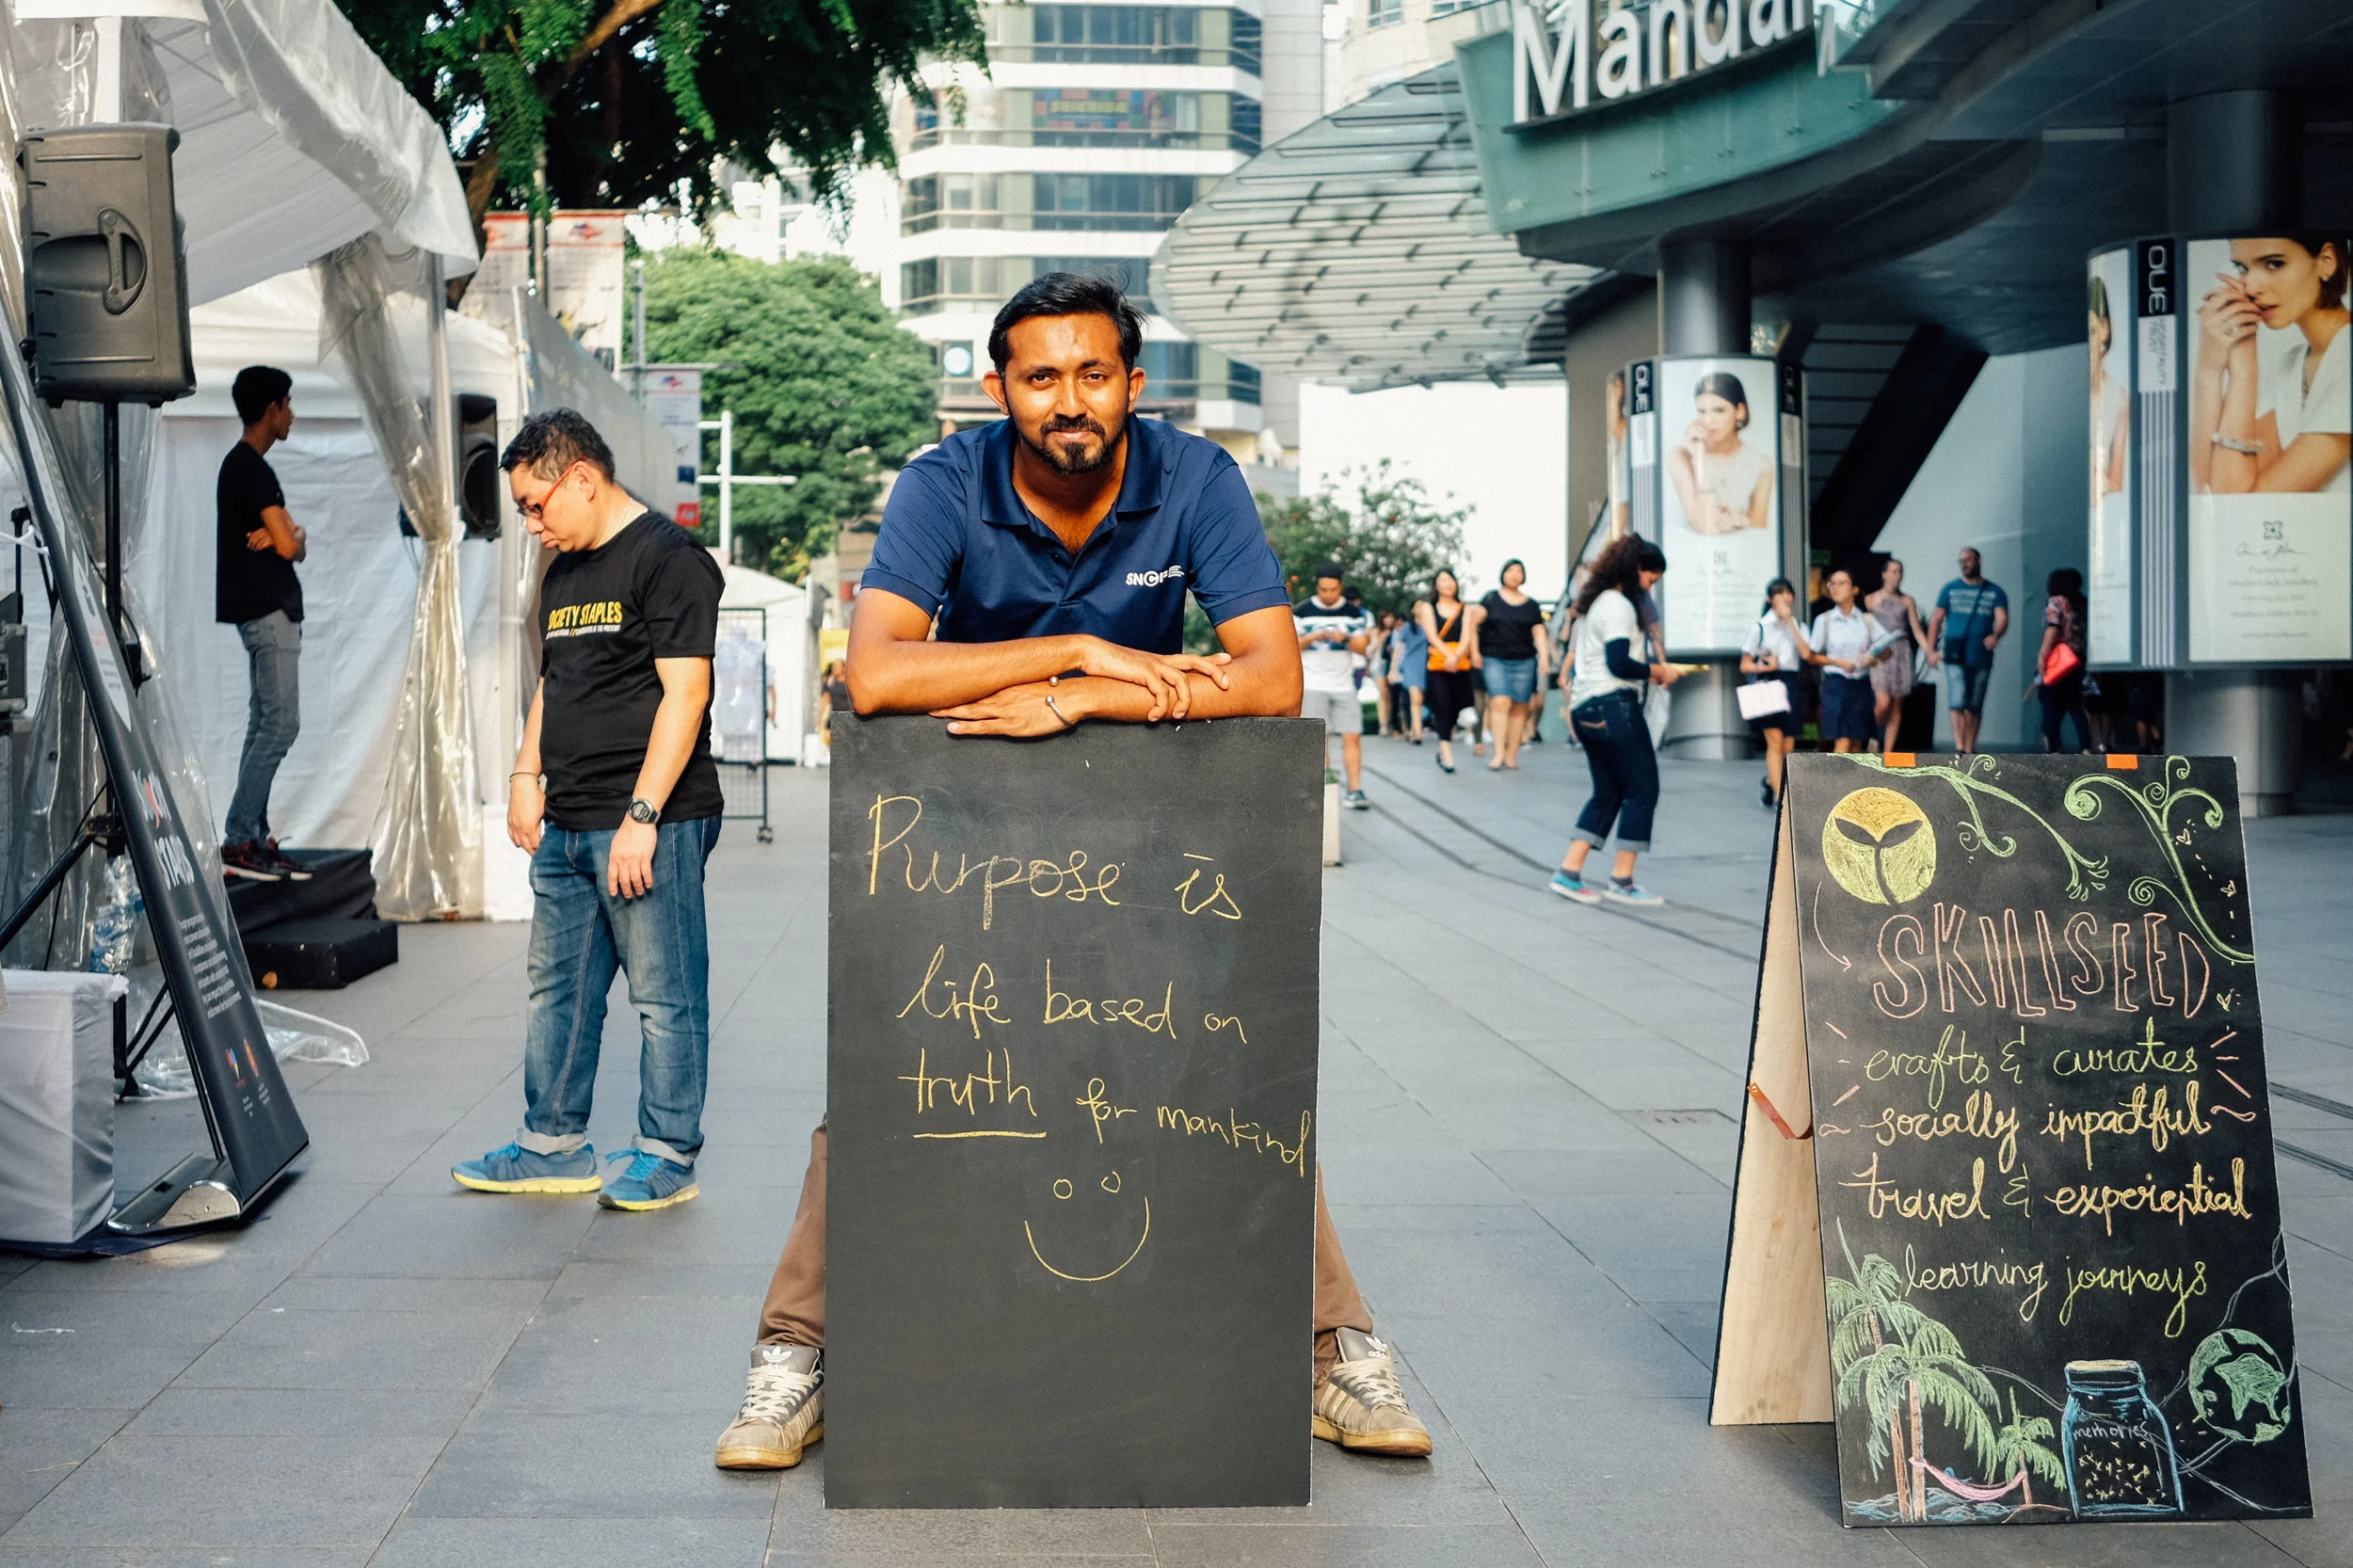 Manda
OUE
OUE
OCIETY STAPLES
SNCF
Purpose is
life based on
truth for mankind
SKILLSEED
crafts & curates
socially impactful
travel & experiential
learning journeys
memories
STARS
adidas